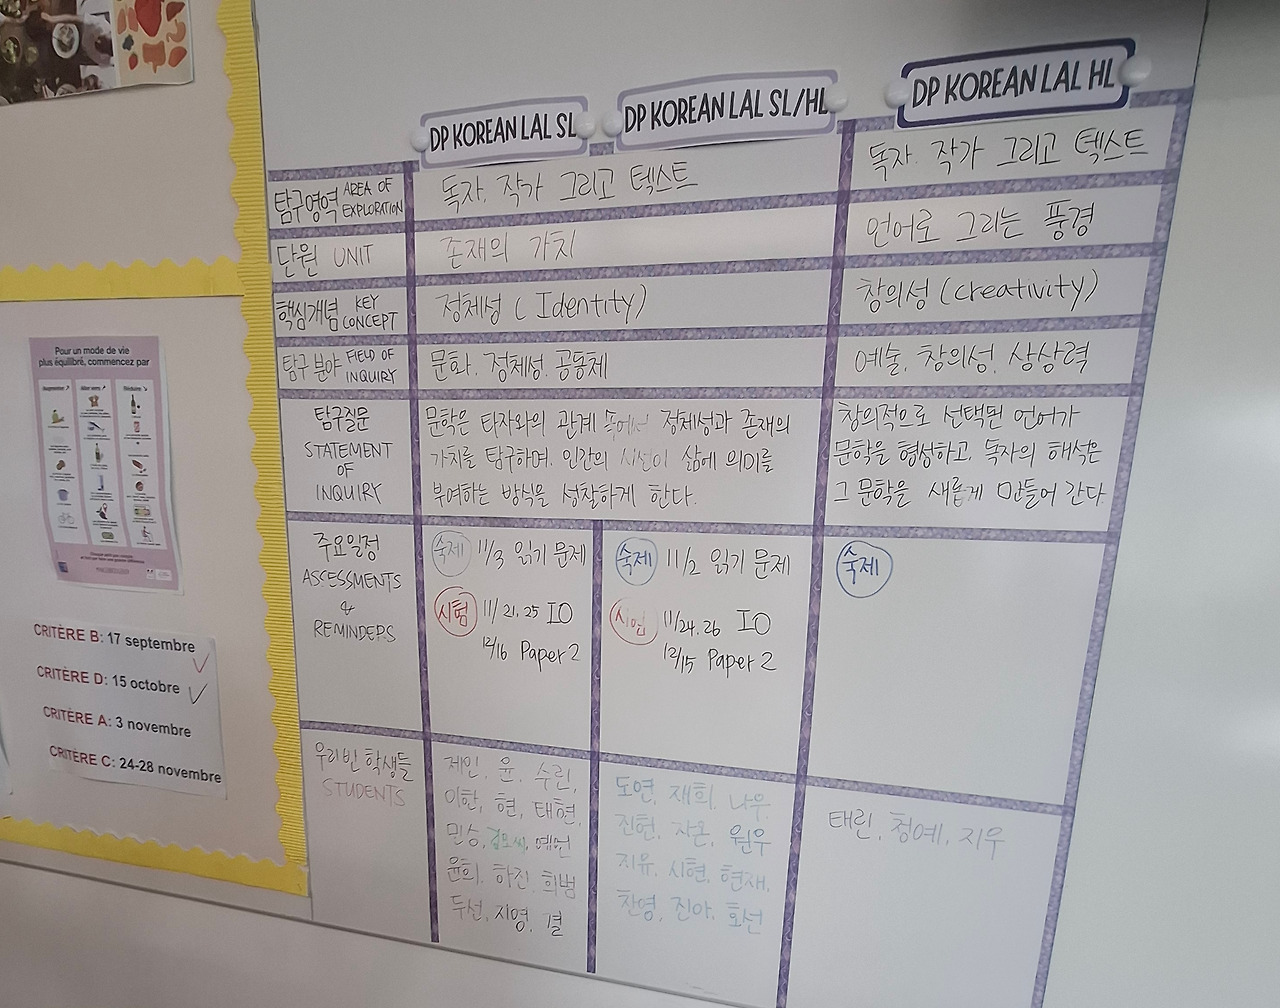 DP KOREAN LAL SL
DP KOREAN LAL SL/HL
DP KOREAN LAL HL
탐구영역 AREA OF EXPLORATION
독자, 작가 그리고 텍스트
독자, 작가 그리고 텍스트
단원 UNIT
존재의 가치
언어로 그리는 풍경
핵심개념 KEY CONCEPT
정체성 (Identity)
창의성 (creativity)
탐구 분야 FIELD OF INQUIRY
문화, 정체성, 공동체
예술, 창의성, 상상력
탐구질문
STATEMENT
OF
INQUIRY
문학은 타자와의 관계 속에서 정체성과 존재의
가치를 탐구하며, 인간의 시선이 삶에 의미를
부여하는 방식을 성찰하게 한다.
창의적으로 선택된 언어가
문학을 형성하고, 독자의 해석은
그 문학을 새롭게 만들어 간다.
주요일정
ASSESSMENTS
&
REMINDERS
숙제 11/3 읽기 문제
시험 11/21, 25 IO
12/16 Paper 2
숙제 11/2 읽기 문제
시험 11/24, 26 IO
12/15 Paper 2
숙제
우리반 학생들
STUDENTS
제인, 윤, 수린,
이한, 현, 태현,
민승, 예원
윤희, 하진, 희범
두선, 지영, 결
도연, 재희, 나우,
진현, 자온, 원우
지유, 시현, 현재,
찬영, 진아, 화선
태린, 청예, 지우
Pour un mode de vie
plus équilibré, commencez par
Augmenter
Aller vers
Réduire
CRITÈRE B: 17 septembre
CRITÈRE D: 15 octobre
CRITÈRE A: 3 novembre
CRITÈRE C: 24-28 novembre